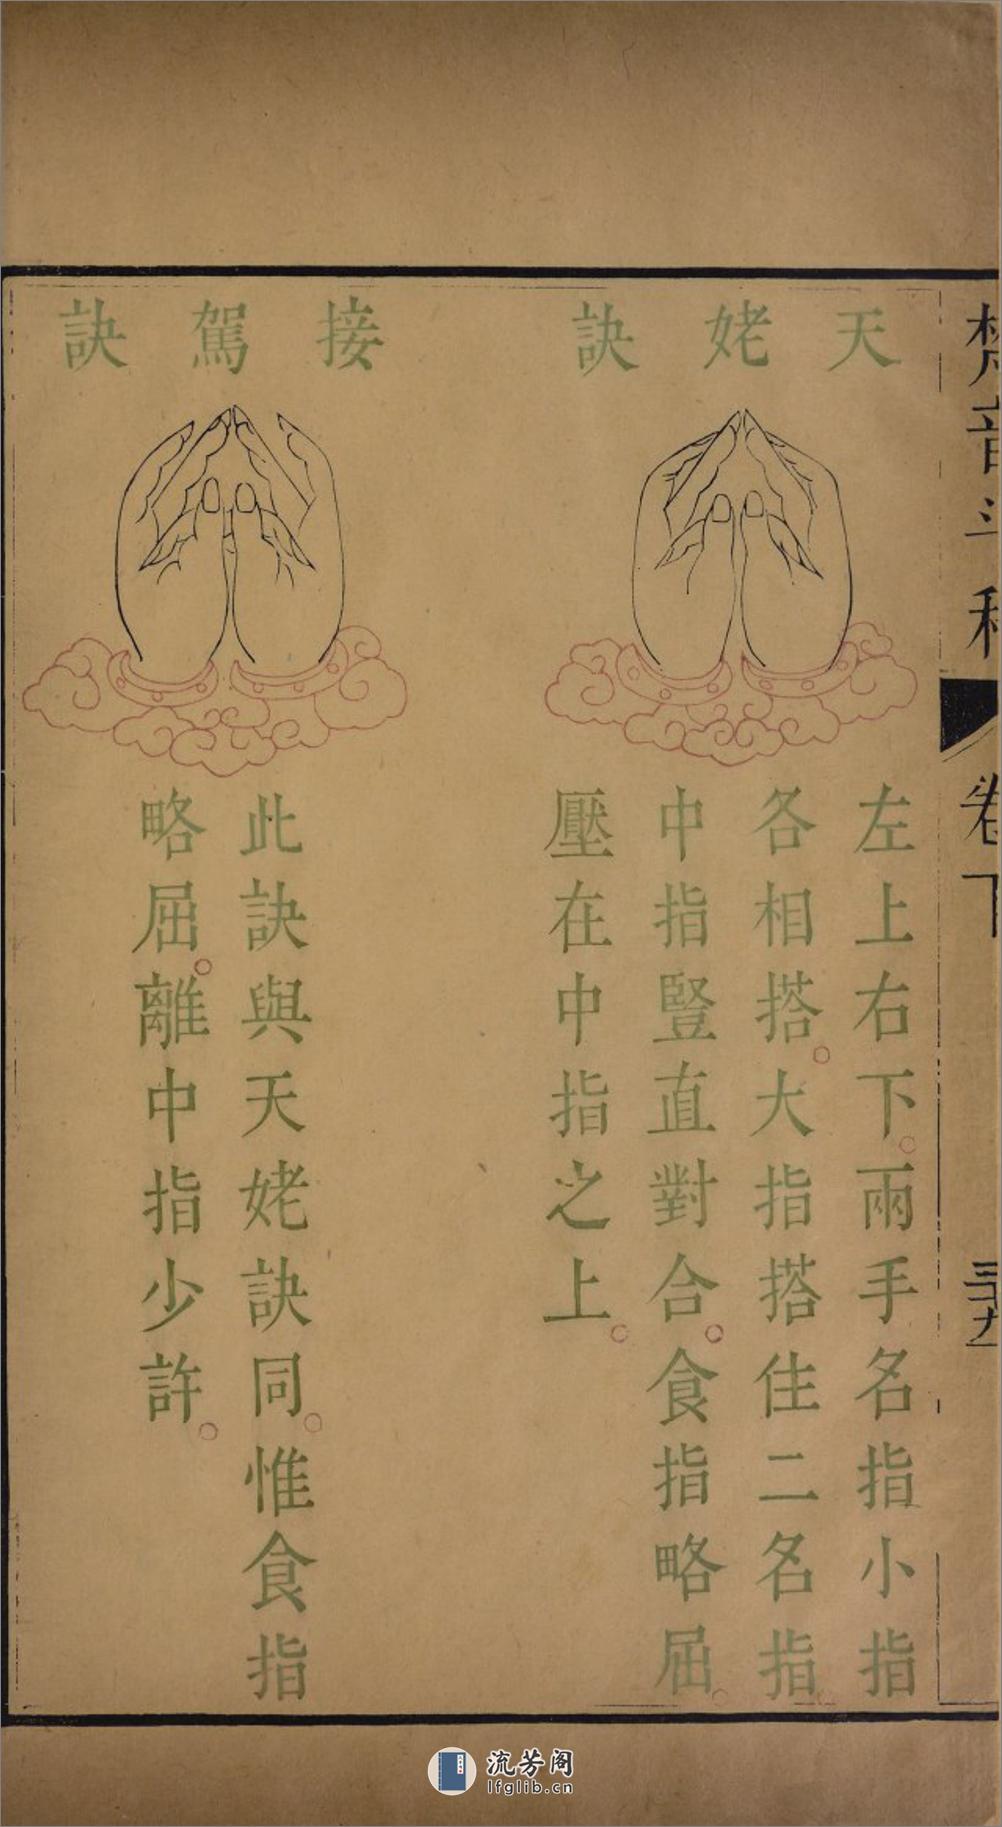 梵音斗科
卷下
天姥訣
左上右下。兩手名指小指
各相搭。大指搭住二名指。
中指豎直對合。食指略屈。
壓在中指之上。
接駕訣
此訣與天姥訣同。惟食指
略屈。離中指少許。
流芳阁
lfglib.cn